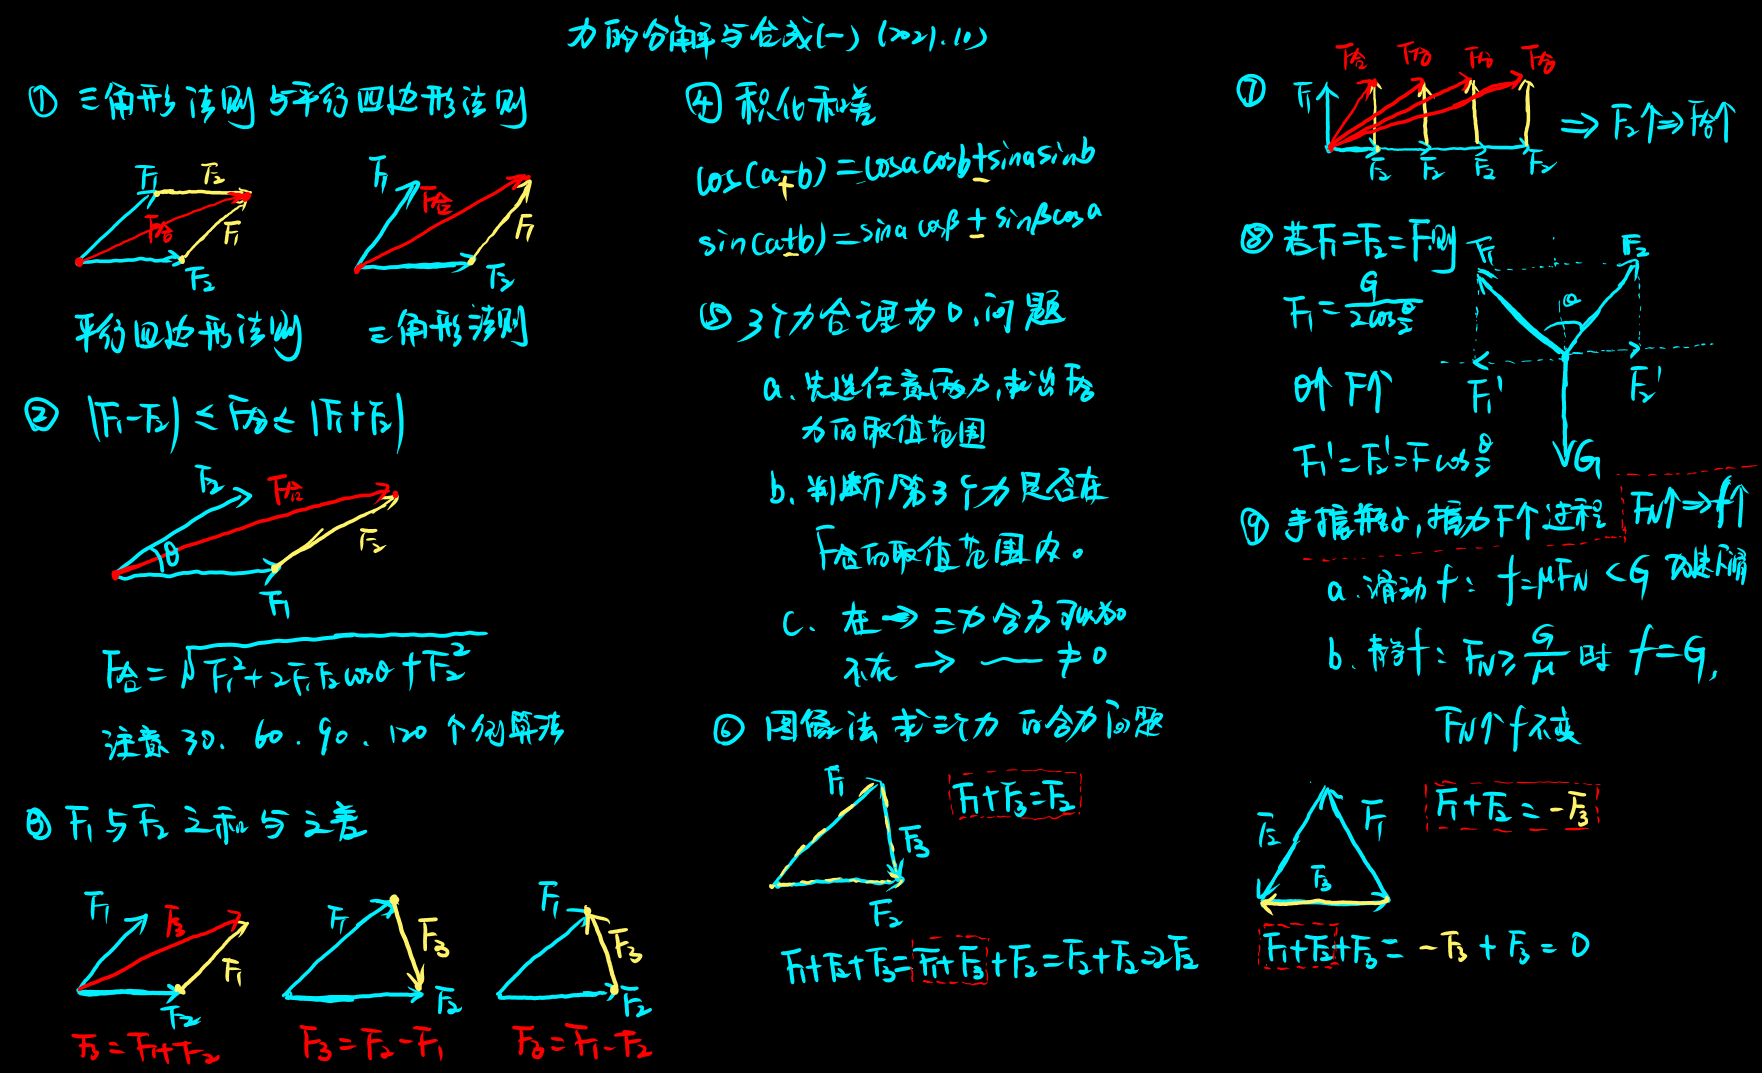 力的分解与合成(一) (2021.10)
① 三角形法则与平行四边形法则
F₁ F₂ F合 F₁ F₂
F₁ F合 F₁ F₂
平行四边形法则 三角形法则
② |F₁-F₂| ≤ F合 ≤ |F₁+F₂|
F₂ F合 F₂ θ F₁
F合 = √F₁²+2F₁F₂cosθ+F₂²
注意 30、60、90、120 个例算法
③ F₁与F₂之和与之差
F₁ F₃ F₁ F₂
F₁ F₃ F₂
F₁ F₃ F₂
F₃=F₁+F₂ F₃=F₂-F₁ F₃=F₁-F₂
④ 积化和差
cos(a∓b)=cosacosb±sinasinb
sin(a±b)=sina cosβ ± sinβcosa
⑤ 3个力合理为0,问题
a、先选任意两力,求出F合
力的取值范围
b、判断第3个力是否在
F合的取值范围内。
c、在→三力合力可以为0
不在 → — ≠0
⑥ 图像法求三个力的合力问题
F₁ F₃ F₂
F₁+F₃=F₂
F₁+F₂+F₃=F₁+F₃+F₂=F₂+F₂=2F₂
⑦ F₁ F合 F合 F合 F合
F₂ F₂ F₂ F₂
⇒ F₂↑⇒F合↑
⑧ 若F₁=F₂=F则
F₁=G/2cosθ/2
θ↑ F↑
F₁'=F₂'=Fcosθ/2
F₁ F₂ θ F₁' F₂' G
⑨ 手握瓶子,握力F个过程 FN↑⇒f↑
a.滑动f: f=μFN<G 加速下滑
b.静f: FN≥G/μ时 f=G,
FN↑f不变
F₂ F₁ F₃
F₁+F₂=-F₃
F₁+F₂+F₃=-F₃+F₃=0